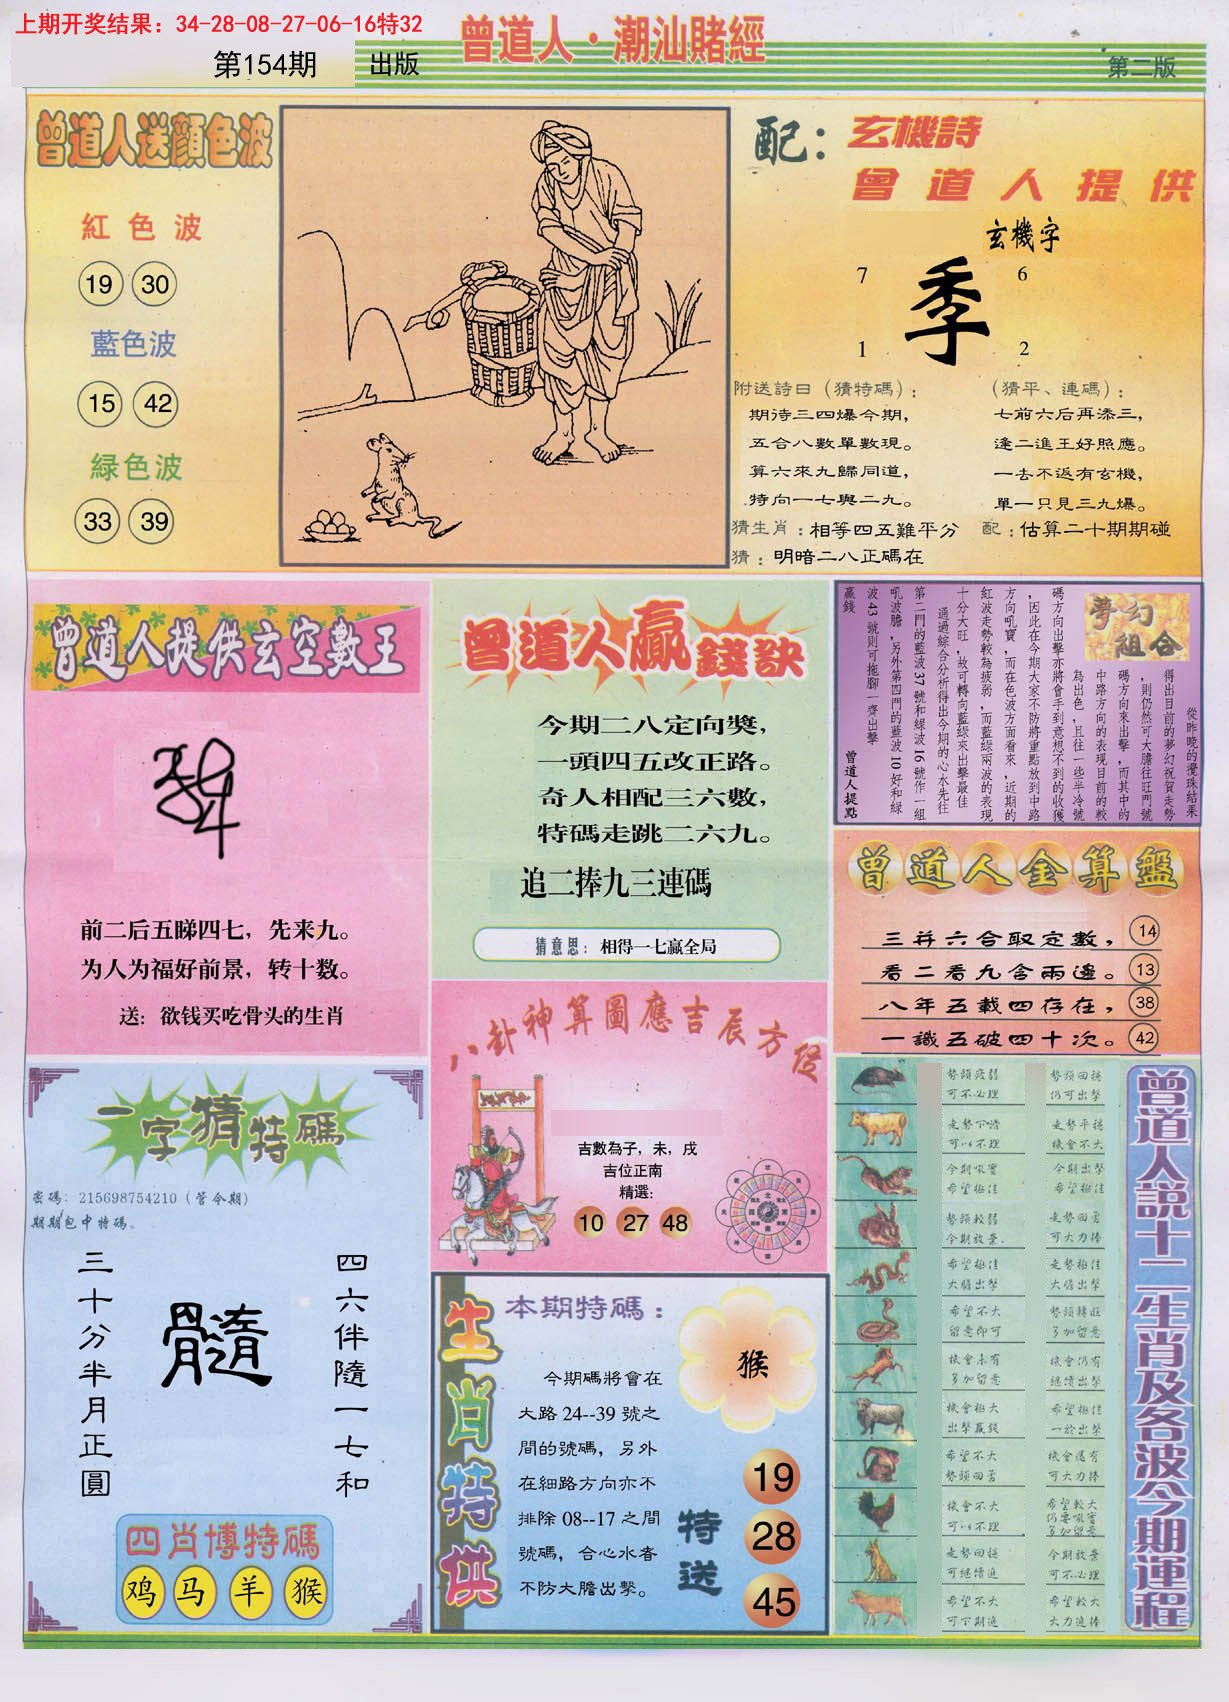 上期开奖结果：34-28-08-27-06-16特32
第154期
出版
曾道人·潮汕賭經
第二版
曾道人送顏色波
紅色波
19 30
藍色波
15 42
緑色波
33 39
配：
玄機詩
曾道人提供
玄機字
7 6
季
1 2
附送詩曰（猜特碼）：
期待三四爆今期，
五合八數單數現。
算六來九歸同道，
特向一七與二九。
（猜平、連碼）：
七前六后再添三，
逢二進王好照應。
一去不返有玄機，
單一只見三九爆。
猜生肖：相等四五難平分
配：估算二十期期碰
猜：明暗二八正碼在
曾道人提供玄空數王
前二后五睇四七，先来九。
为人为福好前景，转十数。
送：欲钱买吃骨头的生肖
曾道人贏錢訣
今期二八定向獎，
一頭四五改正路。
奇人相配三六數，
特碼走跳二六九。
追二捧九三連碼
猜意思：相得一七贏全局
夢幻組合
從昨晚的攪珠結果
得出目前的夢幻祝賀走勢
，則仍然可大膽往旺門號
碼方向來出擊，而其中的
中路方向的表現目前的較
為出色，且往一些半冷號
碼方向出擊亦將會手到意想不到的收獲
，因此在今期大家不防將重點放到中路
方向吼寶，而在色波方面看來，近期的
紅波走勢較為疲弱，而藍綠兩波的表現
十分大旺，故可轉向藍綠來出擊最佳
通過綜合分析得出今期的心水先往
第二門的藍波37號和綠波16號作一組
吼波膽，另外第四門的藍波10好和綠
波43號則可拖腳一齊出擊
贏錢
曾道人提點
曾道人金算盤
三并六合取定數， 14
看二看九含兩邊。 13
八年五載四存在， 38
一識五破四十次。 42
八卦神算圖應吉辰方位
吉數為子，未，戌
吉位正南
精選：
10 27 48
一字猜特碼
密碼：215698754210（管今期）
期期包中特碼。
三十分半月正圓
髓
四六伴隨一七和
四肖博特碼
鸡 马 羊 猴
生肖特供
本期特碼：
猴
今期碼將會在
大路24--39號之
間的號碼，另外
在細路方向亦不
排除08--17之間
號碼，合心水者
不防大膽出擊。
特送
19
28
45
曾道人説十二生肖及各波今期運程
勢頭疲弱
可不必理
勢頭回穩
仍可出擊
可以不理
走勢平穩
機會不大
今期吼寶
希望極佳
今期出擊
希望極佳
勢頭較弱
今期放棄.
走勢回勇
可大力捧
希望極佳
大膽出擊
走勢極佳
大膽出擊
希望不大
留意即可
勢頭轉旺
多加留意
機會未有
多加留意
機會仍有
繼續出擊
機會極大
出擊贏錢
希望極佳
一於出擊
希望不大
勢頭回勇
機會還有
可大力捧
機會不大
可以不理
希望較大
仍要吼寶
多加留意
走勢回穩
可繼續追
今期放棄
可不必理
希望不大
可下期追
希望較大
大力追捧